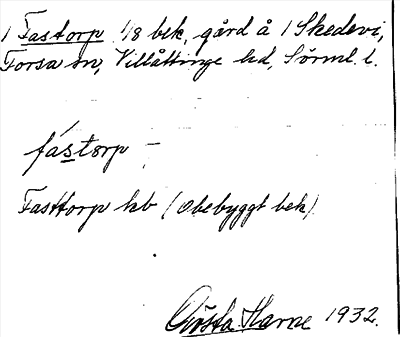 1 Fastorp 1/8 bek, gård å 1 Skedevi,
Forsa sn, Villåttinge hd, Sörml. l.
fástorp -
Fasttorp hb (Obebyggt bek)
Gösta Harne 1932.